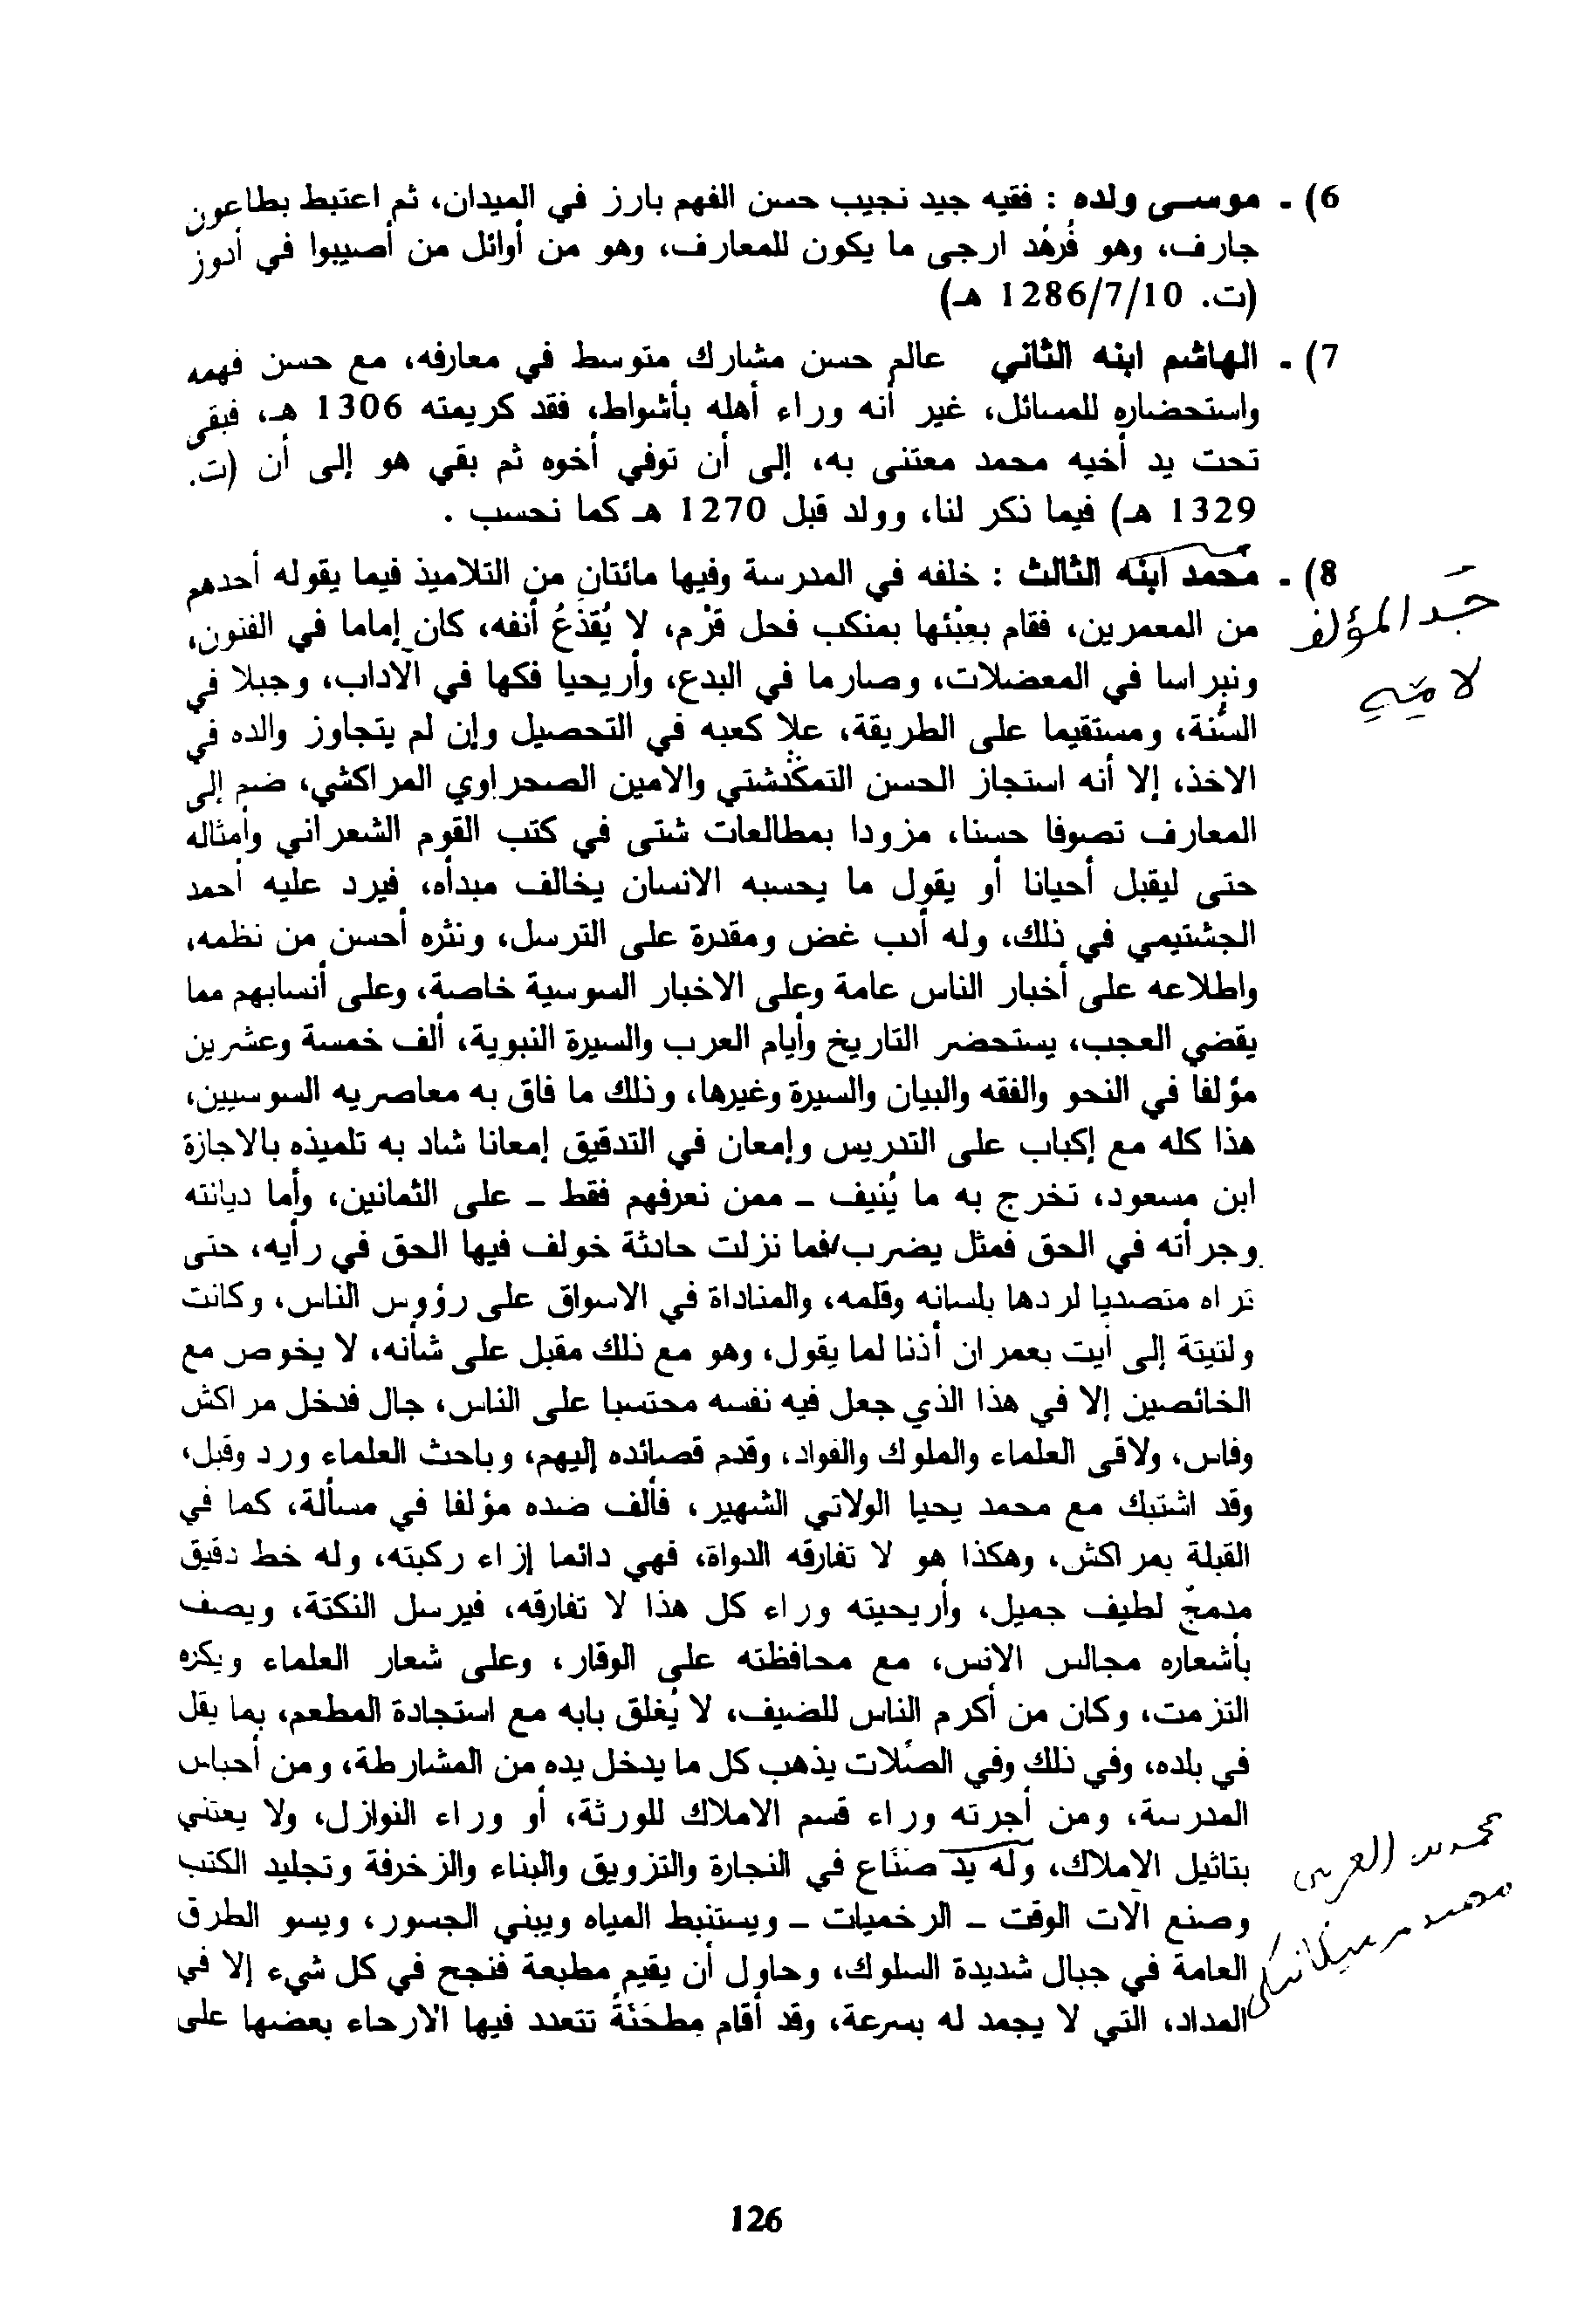 6) - موسى ولده : فقيه جيد نجيب حسن الفهم بارز في الميدان، ثم اعتبط بطاعون
جارف، وهو فُرهُد ارجى ما يكون للمعارف، وهو من أوائل من أصيبوا في أدوز
(ت. 1286/7/10 هـ)
7) - الهاشم ابنه الثاني عالم حسن مشارك متوسط في معارفه، مع حسن فهمه
واستحضاره للمسائل، غير أنه وراء أهله بأشواط، فقد كريمته 1306 هـ، فبقى
تحت يد أخيه محمد معتنى به، إلى أن توفي أخوه ثم بقي هو إلى أن (ت.
1329 هـ) فيما ذكر لنا، وولد قبل 1270 هـ كما نحسب .
8) - محمد ابنه الثالث : خلفه في المدرسة وفيها مائتان من التلاميذ فيما يقوله أحدهم
جَد المؤلف
من المعمرين، فقام بعِبْئها بمنكب فحل قرْم، لا يُقذَعُ أنفه، كان إماما في الفنون،
لأمه
ونبراسا في المعضلات، وصارما في البدع، وأريحيا فكها في الآداب، وجبلا في
السُّنة، ومستقيما على الطريقة، علا كعبه في التحصيل وإن لم يتجاوز والده في
الاخذ، إلا أنه استجاز الحسن التمكدشتي والامين الصحراوي المراكشي، ضم إلى
المعارف تصوفا حسنا، مزودا بمطالعات شتى في كتب القوم الشعراني وأمثاله
حتى ليقبل أحيانا أو يقول ما يحسبه الانسان يخالف مبدأه، فيرد عليه أحمد
الجشتيمي في ذلك، وله أدب غض ومقدرة على الترسل، ونثره أحسن من نظمه،
واطلاعه على أخبار الناس عامة وعلى الاخبار السوسية خاصة، وعلى أنسابهم مما
يقضي العجب، يستحضر التاريخ وأيام العرب والسيرة النبوية، ألف خمسة وعشرين
مؤلفا في النحو والفقه والبيان والسيرة وغيرها، وذلك ما فاق به معاصريه السوسيين،
هذا كله مع إكباب على التدريس وإمعان في التدقيق إمعانا شاد به تلميذه بالاجازة
ابن مسعود، تخرج به ما يُنيف - ممن نعرفهم فقط - على الثمانين، وأما ديانته
وجرأته في الحق فمثل يضرب/فما نزلت حادثة خولف فيها الحق في رأيه، حتى
تراه متصديا لردها بلسانه وقلمه، والمناداة في الاسواق على رؤوس الناس، وكانت
ولتيتة إلى أيت بعمران أذنا لما يقول، وهو مع ذلك مقبل على شأنه، لا يخوص مع
الخائصين إلا في هذا الذي جعل فيه نفسه محتسبا على الناس، جال فدخل مراكش
وفاس، ولاقى العلماء والملوك والقواد، وقدم قصائده إليهم، وباحث العلماء ورد وقبل،
وقد اشتبك مع محمد يحيا الولاتي الشهير، فألف ضده مؤلفا في مسألة، كما في
القبلة بمراكش، وهكذا هو لا تفارقه الدواة، فهي دائما إزاء ركبته، وله خط دقيق
مدمجٌ لطيف جميل، وأريحيته وراء كل هذا لا تفارقه، فيرسل النكتة، ويصف
بأشعاره مجالس الانس، مع محافظته على الوقار، وعلى شعار العلماء ويكره
التزمت، وكان من أكرم الناس للضيف، لا يُغلق بابه مع استجادة المطعم، بما يقل
في بلده، وفي ذلك وفي الصِّلات يذهب كل ما يدخل يده من المشارطة، ومن أحباس
المدرسة، ومن أجرته وراء قسم الاملاك للورثة، أو وراء النوازل، ولا يعتني
محمد بن العربي
بتاثيل الاملاك، وله يد صنَّاع في النجارة والتزويق والبناء والزخرفة وتجليد الكتب
وصنع الآت الوقت - الرخميات - ويستنبط المياه ويبني الجسور، ويسو الطرق
العامة في جبال شديدة السلوك، وحاول أن يقيم مطبعة فنجح في كل شيء إلا في
المداد، التي لا يجمد له بسرعة، وقد أقام مِطحَنَةً تتعدد فيها الارحاء بعضها على
126